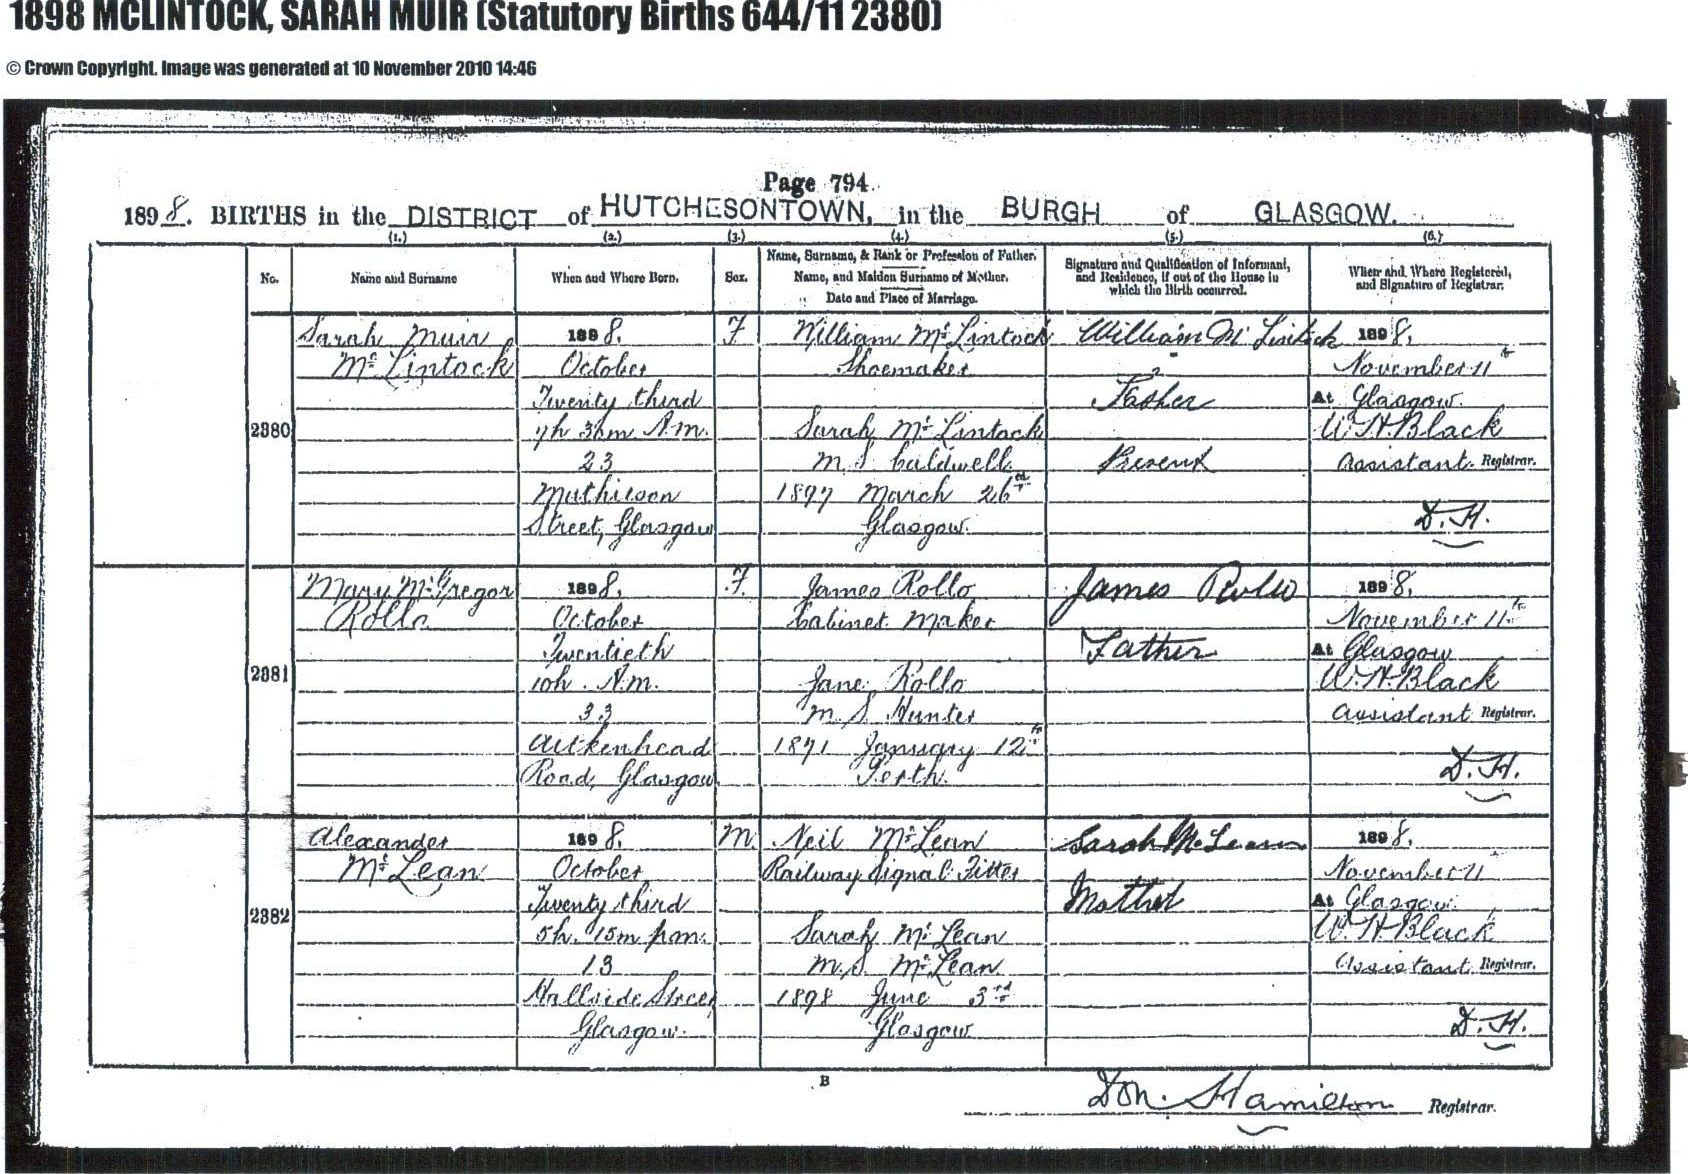 1898 MCLINTOCK, SARAH MUIR (Statutory Births 644/11 2380)
© Crown Copyright. Image was generated at 10 November 2010 14:46
Page 794.
1898. BIRTHS in the DISTRICT of HUTCHESONTOWN, in the BURGH of GLASGOW.
(1.) (2.) (3.) (4.) (5.) (6.)
No.
Name and Surname
When and Where Born.
Sex.
Name, Surname, & Rank or Profession of Father.
Name, and Maiden Surname of Mother.
Date and Place of Marriage.
Signature and Qualification of Informant,
and Residence, if out of the House in
which the Birth occurred.
When and Where Registered,
and Signature of Registrar.
2380
Sarah Muir
McLintock
1898.
October
Twenty third
7h 30m A.M.
23
Mathieson
Street, Glasgow
F
William McLintock
Shoemaker
Sarah McLintock
M.S. Caldwell
1897 March 26
Glasgow.
William McLintock
Father
Present
1898.
November 11th
At Glasgow.
W. H. Black
Assistant Registrar.
D. H.
2381
Mary McGregor
Rollo
1898.
October
Twentieth
10h. A.M.
33
Aitkenhead
Road, Glasgow
F.
James Rollo
Cabinet Maker
Jane Rollo
M.S. Hunter
1871 January 12th
Perth.
James Rollo
Father
1898.
November 11th
At Glasgow
W. H. Black
Assistant Registrar.
D. H.
2382
Alexander
McLean
1898.
October
Twenty third
5h. 15m p.m.
13
Hallside Street
Glasgow.
M.
Neil McLean
Railway Signal Fitter
Sarah McLean
M.S. McLean
1898 June 3rd
Glasgow
Sarah McLean
Mother
1898.
November 11
At Glasgow.
W. H. Black
Assistant Registrar.
D. H.
B
Hamilton Registrar.